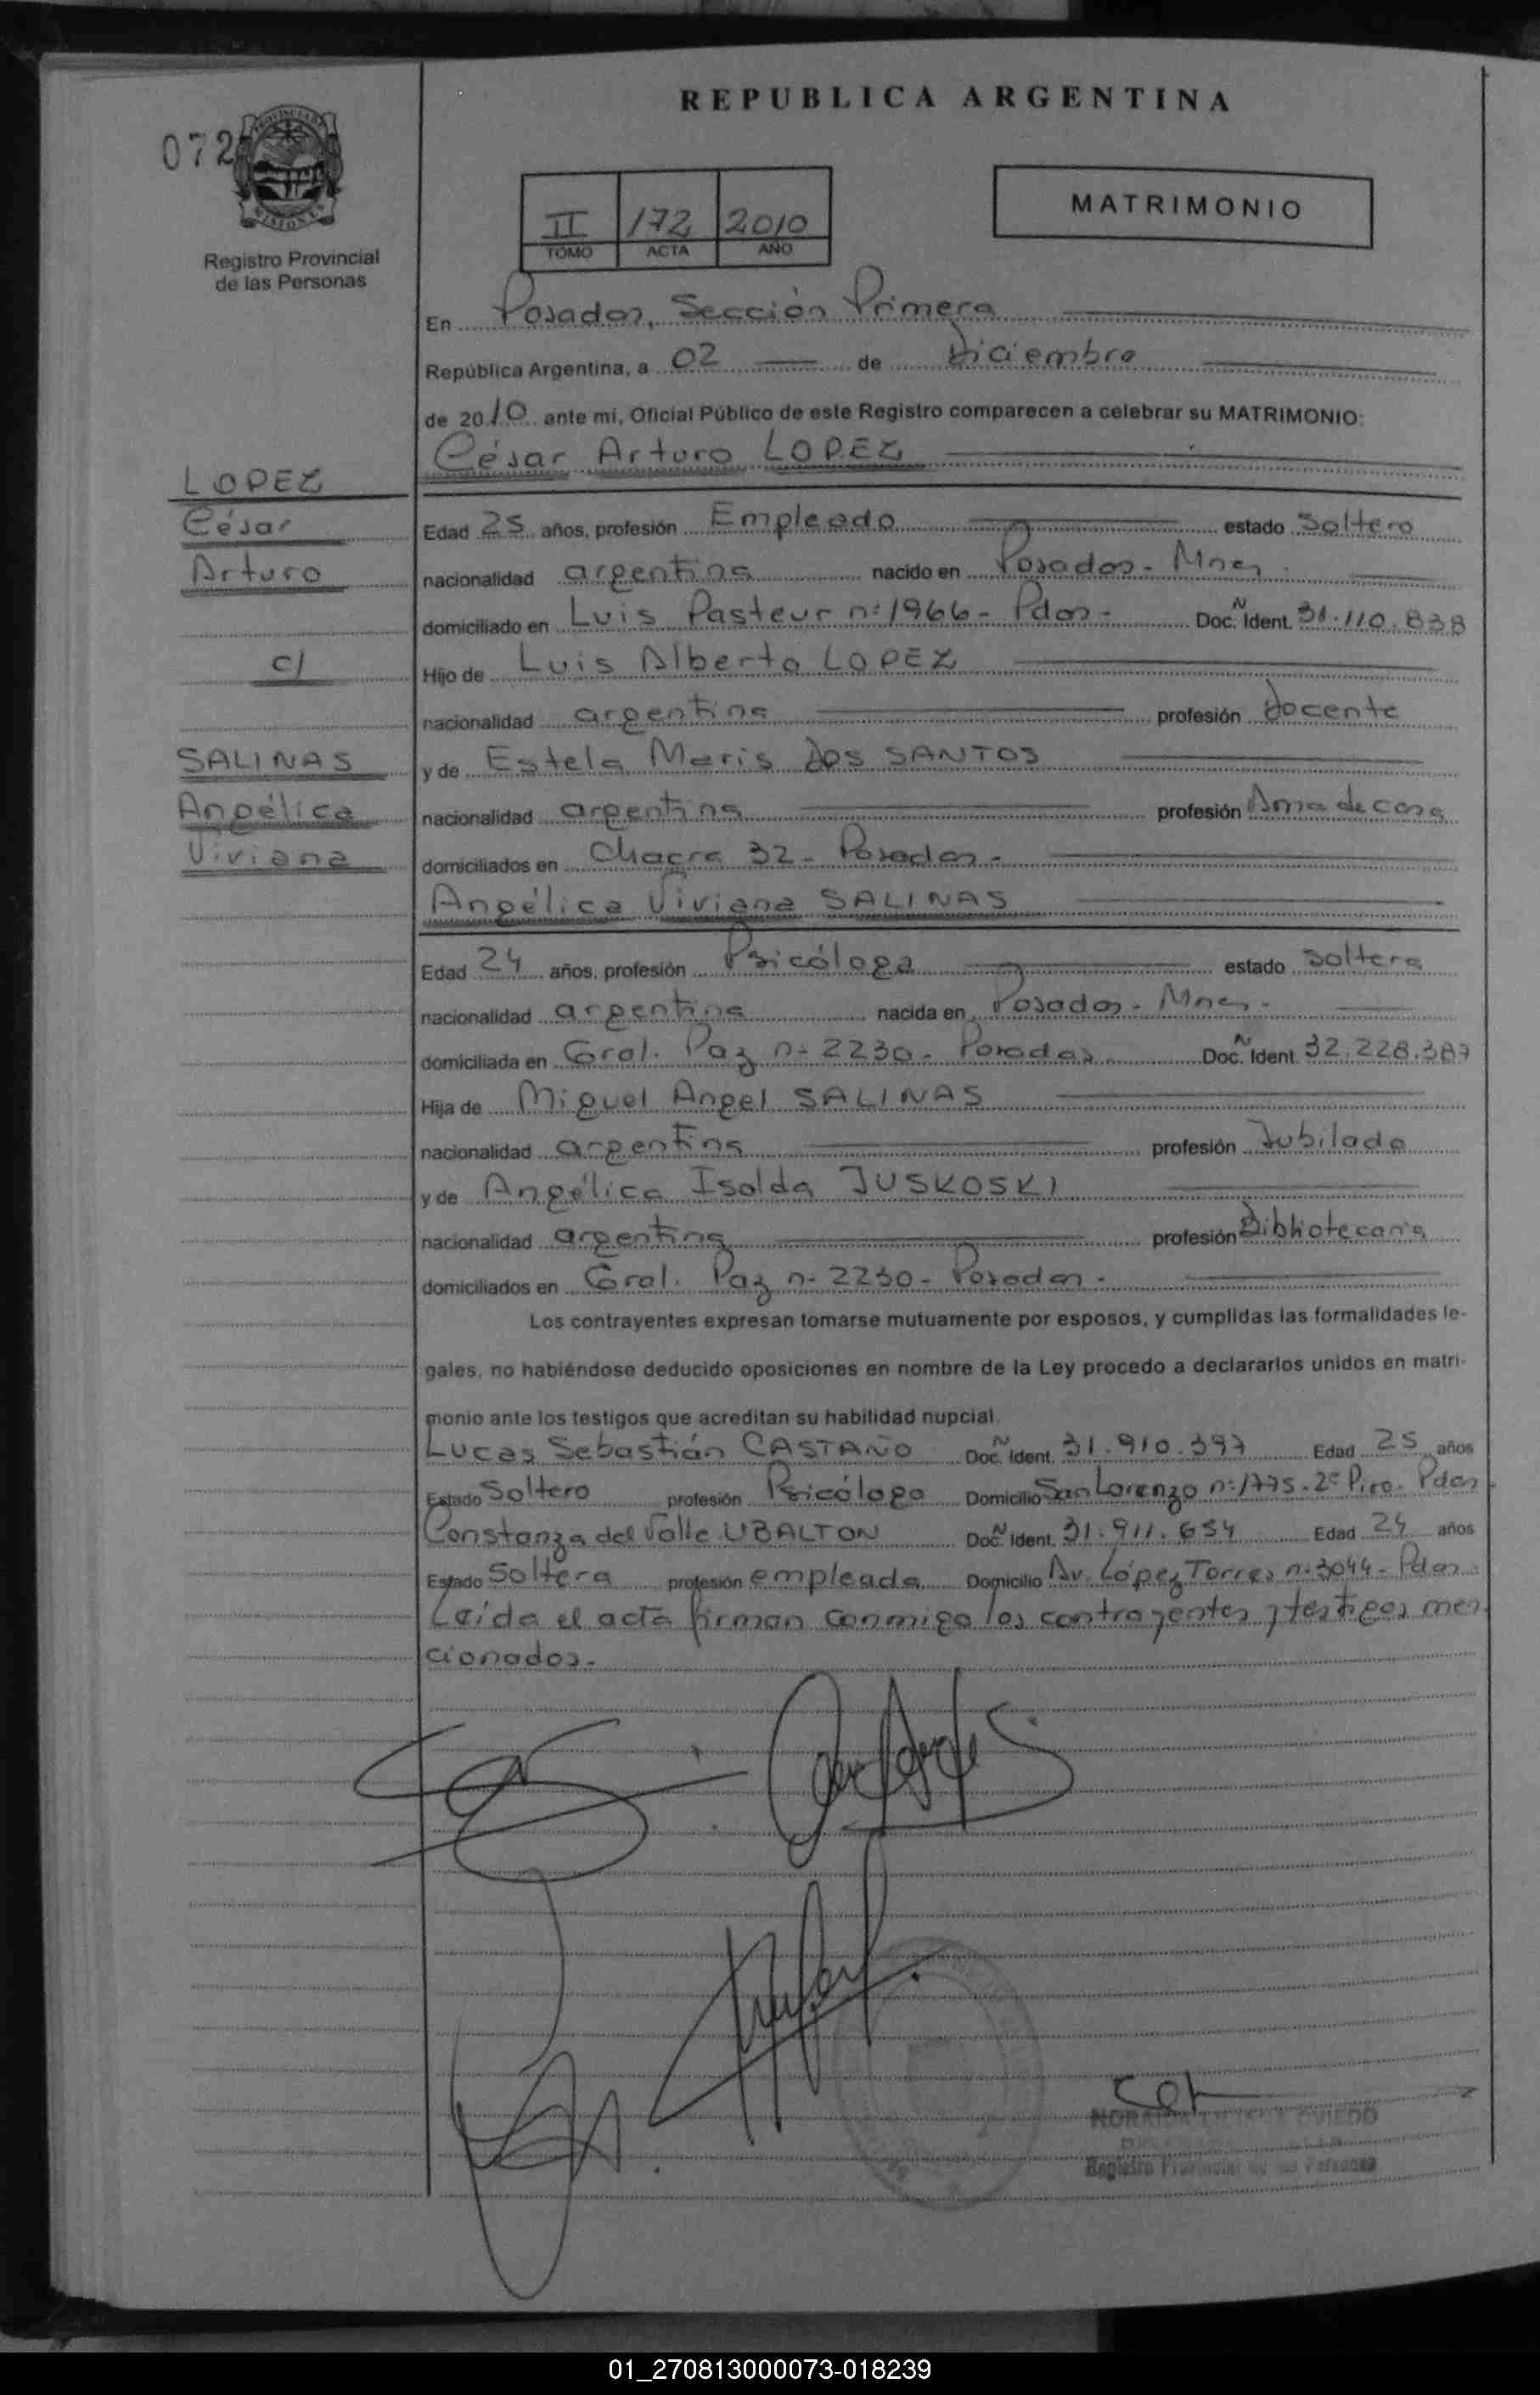 REPUBLICA ARGENTINA
072
Registro Provincial
de las Personas
II 172 2010
TOMO ACTA AÑO
MATRIMONIO
En Posadas, Sección Primera
República Argentina, a 02 de Diciembre
de 2010 ante mi, Oficial Público de este Registro comparecen a celebrar su MATRIMONIO:
César Arturo LOPEZ
LOPEZ
César
Arturo
c/
SALINAS
Angélica
Viviana
Edad 25 años, profesión Empleado estado Soltero
nacionalidad argentina nacido en Posadas - Mnes
domiciliado en Luis Pasteur nº 1966 - Pdas - Doc. N Ident. 31.110.838
Hijo de Luis Alberto LOPEZ
nacionalidad argentina profesión docente
y de Estela Maris DOS SANTOS
nacionalidad argentina profesión Ama de casa
domiciliados en Chacra 32 - Posadas -
Angélica Viviana SALINAS
Edad 24 años, profesión Psicóloga estado Soltera
nacionalidad argentina nacida en Posadas - Mnes -
domiciliada en Gral. Paz nº 2230 - Posadas Doc. N Ident. 32.228.387
Hija de Miguel Angel SALINAS
nacionalidad argentina profesión Jubilado
y de Angélica Isolda JUSKOSKI
nacionalidad argentina profesión Bibliotecaria
domiciliados en Gral. Paz nº 2230 - Posadas -
Los contrayentes expresan tomarse mutuamente por esposos, y cumplidas las formalidades le-
gales, no habiéndose deducido oposiciones en nombre de la Ley procedo a declararlos unidos en matri-
monio ante los testigos que acreditan su habilidad nupcial.
Lucas Sebastián CASTAÑO Doc. N Ident. 31.910.397 Edad 25 años
Estado Soltero profesión Psicólogo Domicilio San Lorenzo nº 1775 - 2º Piso - Pdas
Constanza del Valle UBALTON Doc. N Ident. 31.911.654 Edad 24 años
Estado Soltera profesión empleada Domicilio Av. López Torres nº 3044 - Pdas -
Leída el acta firman conmigo los contrayentes y testigos men
cionados.-
OVIEDO
Registro Provincial de las Personas
01_270813000073-018239